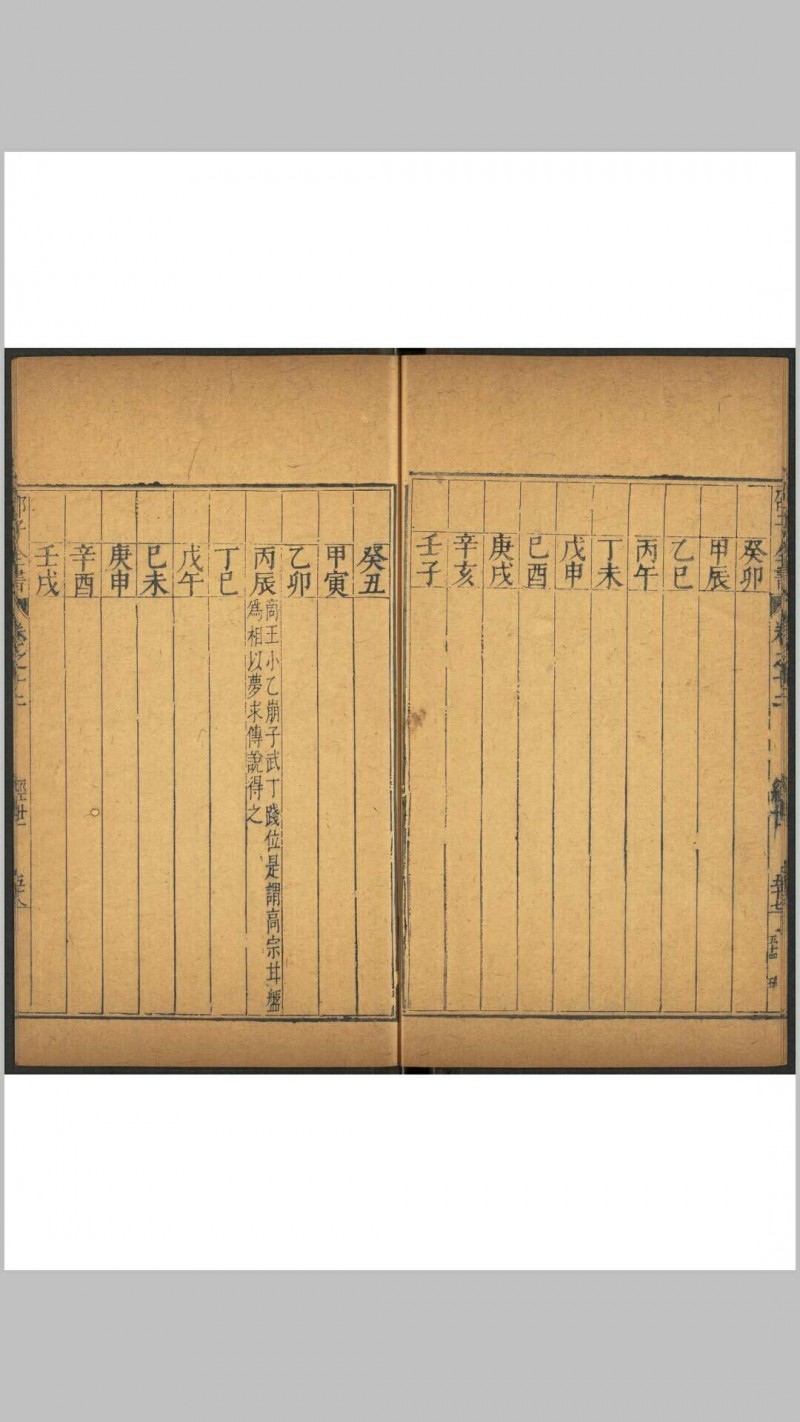 癸卯
甲辰
乙巳
丙午
丁未
戊申
己酉
庚戌
辛亥
壬子
癸丑
甲寅
乙卯
丙辰
商王小乙崩子武丁踐位是謂高宗甘盤
為相以夢求傅說得之
丁巳
戊午
己未
庚申
辛酉
壬戌
邵子全書
卷之十二
經世